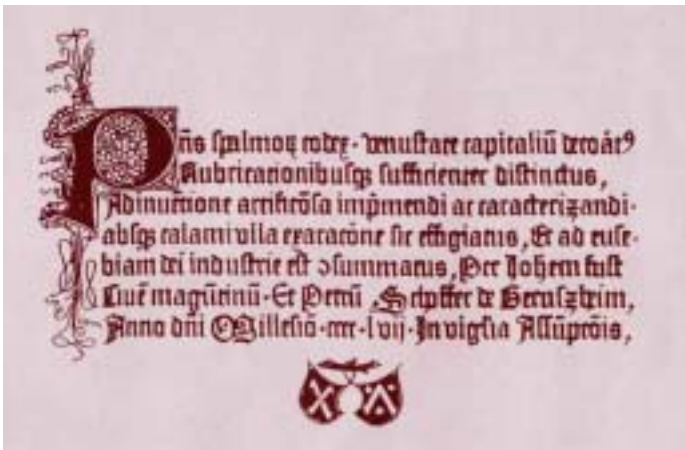 Pñs spalmoꝝ codex· venustate capitaliū decorat⁹
Rubricationibusqꝫ sufficienter distinctus,
Adinuentione artificōsa imp̄mendi ac caracterizandi·
absqꝫ calami vlla exaracōne sic effigiatus, Et ad euse-
biam dei industrie est ꝯsummatus, Per Johem fust
Ciuē magūtinū· Et Petrū Schoffer de Gernszheim,
Anno dñi Millesio· cccc· lvij· In vigīlia Assūpcōis,